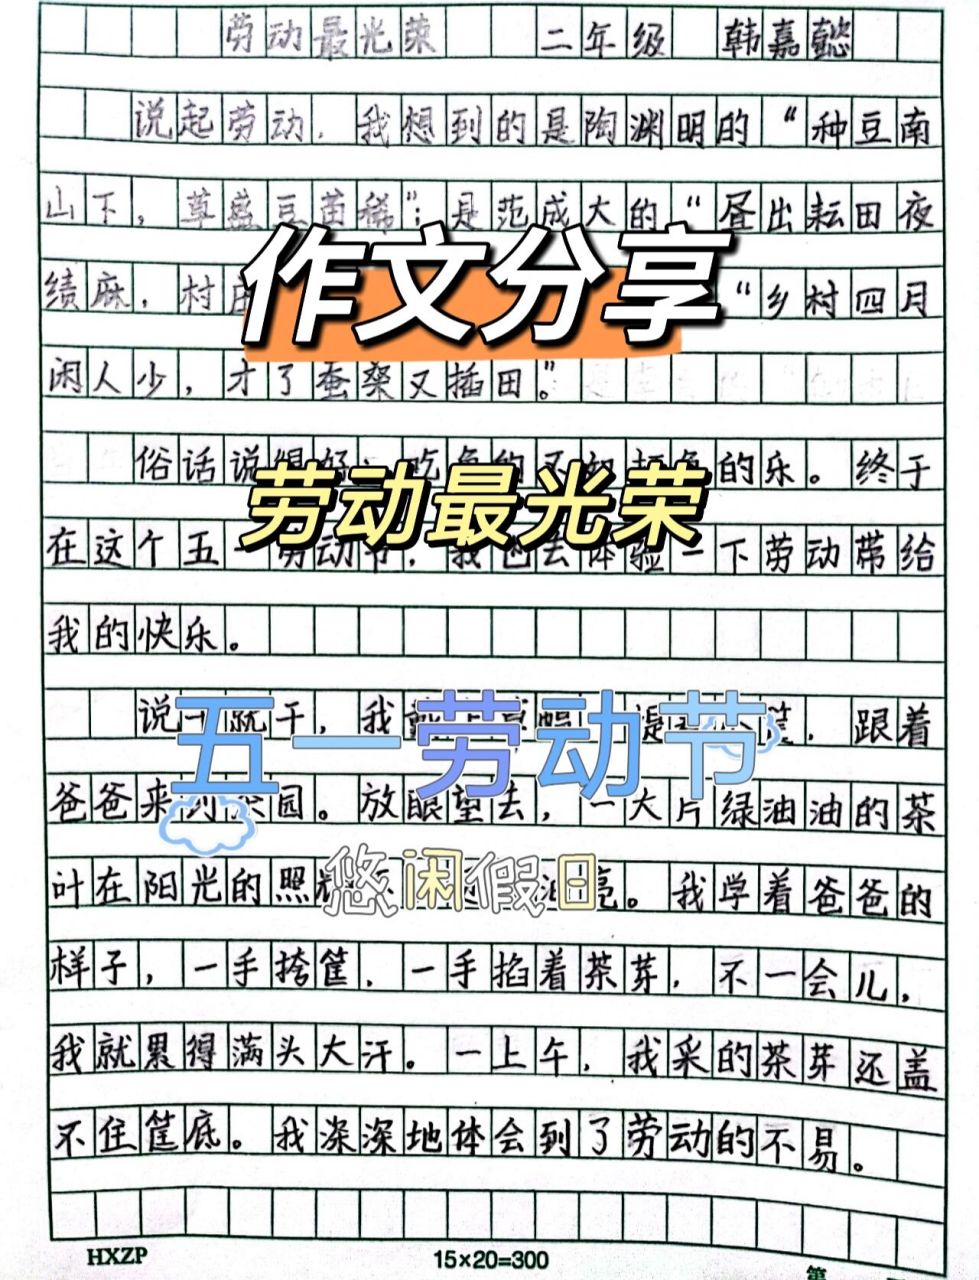 劳动最光荣 二年级 韩嘉懿
说起劳动，我想到的是陶渊明的“种豆南
山下，草盛豆苗稀”；是范成大的“昼出耘田夜
绩麻，村庄
作文分享
“乡村四月
闲人少，才了蚕桑又插田。”
俗话说得好：吃
的乐。终于
劳动最光荣
在这个五一劳动节，我也去体验一下劳动带给
我的快乐。
说干就干，我
跟着
五一劳动节
爸爸来到茶园。放眼望去，一大片绿油油的茶
叶在阳光的照
亮。我学着爸爸的
悠闲假日
样子，一手挎筐，一手掐着茶芽，不一会儿，
我就累得满头大汗。一上午，我采的茶芽还盖
不住筐底。我深深地体会到了劳动的不易。
HXZP 15×20=300 第